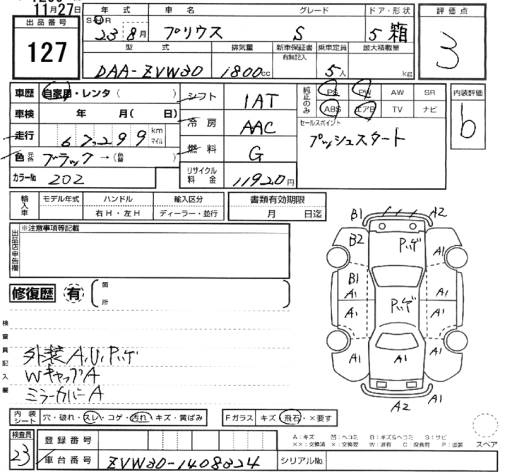 11月27日
年式 車名 グレード ドア・形状 評価点
出品番号
127
S H R 23年 8月 プリウス S 5 箱
3
型式 排気量 新車保証書 有無記入 乗車定員 最大積載量
DAA-ZVW30 1800cc 5人 kg
車歴 自家用・レンタ( ) シフト 1AT 純正のみ PS PW AW SR 内装評価
ABS エアB TV ナビ
車検 年 月( 日) 冷房 AAC セールスポイント b
走行 67,299 km マイル プッシュスタート
色 ブラック→( ) 燃料 G
カラーNo 202 リサイクル料金 11920円
輸入車 モデル年式 ハンドル 輸入区分 書類有効期限
右H・左H ディーラー・並行 月 日迄
出品店申告欄 ※注意事項等記載
B1 A2
B2 Pハゲ
A1
B1
A1 A1
Pハゲ
A1 A1
A1 A1
A1
A2 A1
修復歴 有 箇所
検査員記入欄
外装A,U,Pハゲ
WキャップA
ミラーカバーA
内装シート 穴・破れ・スレ・コゲ・汚れ・キズ・黄ばみ Fガラス キズ・飛石・×要す
A:キズ 凹:ヘコミ B:キズ&ヘコミ S:サビ
スペア
検査員 23 登録番号
車台番号 ZVW30-1408324 シリアルNo